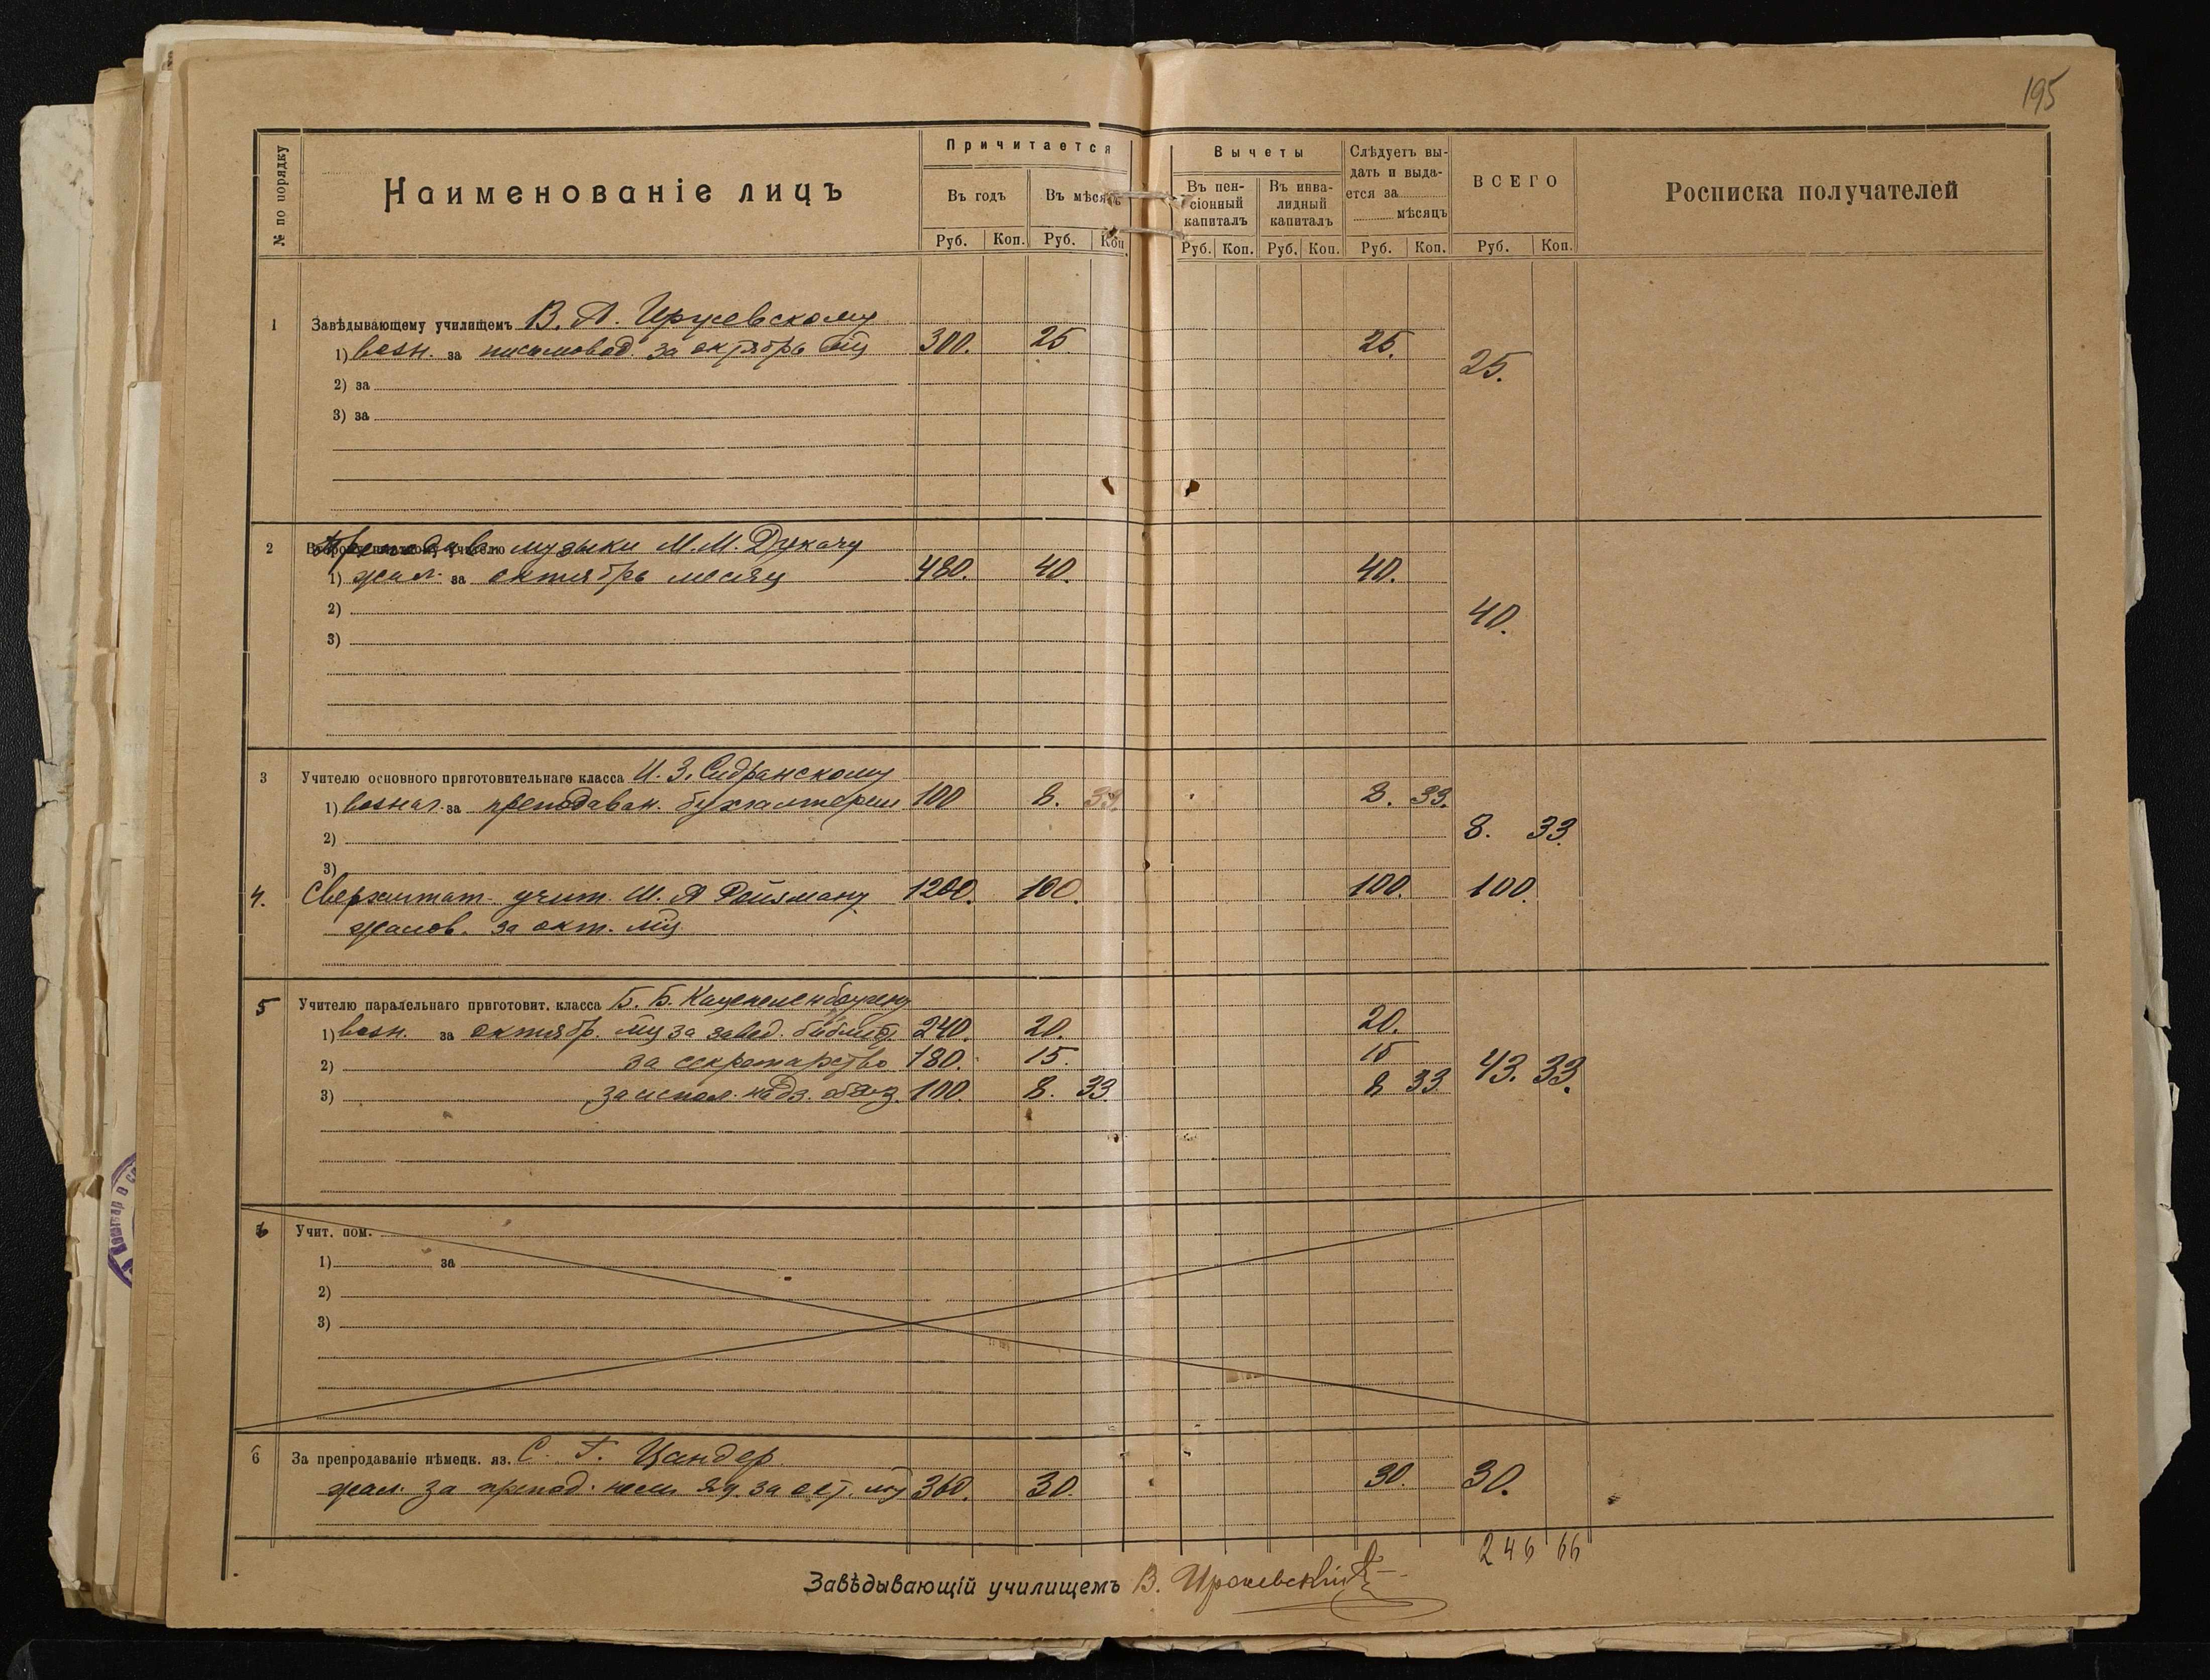 195
№ по порядку
Наименованіе лицъ
Причитается
Въ годъ
Въ мѣсяцъ
Руб. Коп. Руб. Коп.
Вычеты
Въ пен-
сіонный
капиталъ
Въ инва-
лидный
капиталъ
Слѣдуетъ вы-
дать и выда-
ется за
мѣсяцъ
ВСЕГО
Росписка получателей
Руб. Коп. Руб. Коп. Руб. Коп. Руб. Коп.
1 Завѣдывающему училищемъ В. А.
1) возн. за письмовод. за октябрь мц 300. 25. 25.
25.
2) за
3) за
2 Преподав. музыки М. М. Дукачу
1) жал. за октябрь месяц 480. 40. 40.
2)
40.
3)
3 Учителю основного приготовительнаго класса И. З. Сидранскому
1) вознаг. за преподаван. бухгалтеріи 100 8. 33. 8. 33.
2)
8. 33.
3)
4. Сверхштат. учит. И. А Фойгману 1200. 100. 100. 100.
жалов. за окт. мц
5 Учителю паралельнаго приготовит. класса Б. Б. Каценеленбогену
1) возн. за октябр. мц за завед. библіот. 240. 20. 20.
2) за секретарство 180. 15. 15
43. 33.
3) за испол. надз. обяз. 100. 8. 33 8 33
Учит. пом.
1) за
2)
3)
6 За препродаваніе нѣмецк. яз. С. Г. Цандер
жал. за препод. нем яз. за окт. мц 360. 30. 30. 30.
246 66
Завѣдывающій училищемъ В.